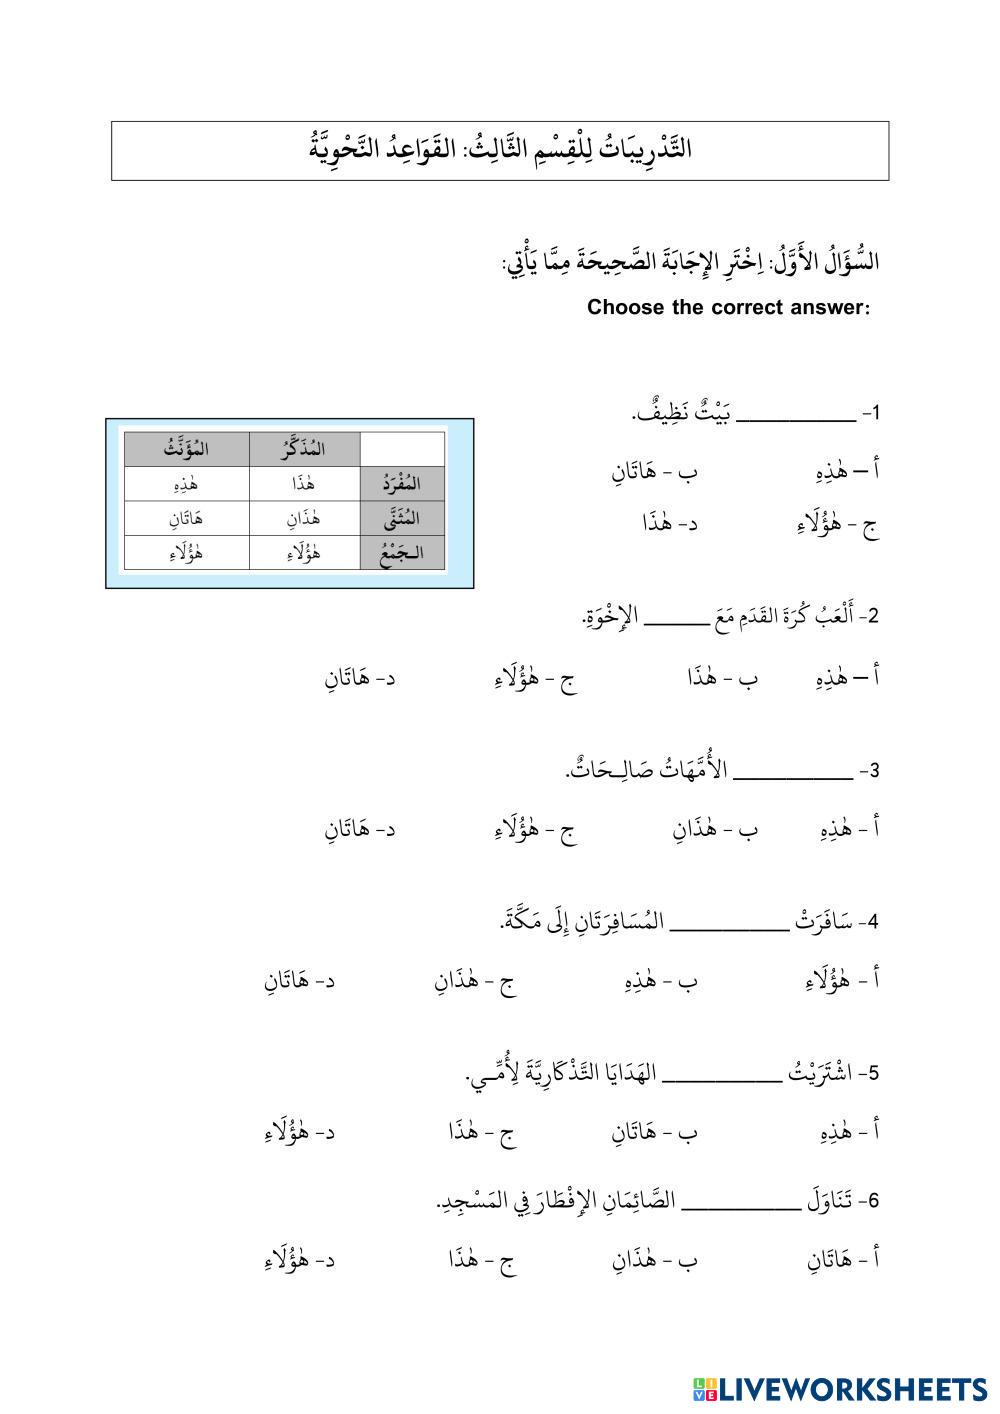 التَّدْرِيبَاتُ لِلْقِسْمِ الثَّالِثُ: القَوَاعِدُ النَّحْوِيَّةُ
السُّؤَالُ الأَوَّلُ: اِخْتَرِ الإِجَابَةَ الصَّحِيحَةَ مِمَّا يَأْتِي:
Choose the correct answer:
1- __________ بَيْتٌ نَظِيفٌ.
أ – هٰذِهِ ب - هَاتَانِ
ج - هٰؤُلَاءِ د- هٰذَا
المُذَكَّرُ المُؤَنَّثُ
المُفْرَدُ هٰذَا هٰذِهِ
المُثَنَّى هٰذَانِ هَاتَانِ
الـجَمْعُ هٰؤُلَاءِ هٰؤُلَاءِ
2- أَلْعَبُ كُرَةَ القَدَمِ مَعَ ______ الإِخْوَةِ.
أ – هٰذِهِ ب - هٰذَا ج - هٰؤُلَاءِ د- هَاتَانِ
3- __________ الأُمَّهَاتُ صَالِـحَاتٌ.
أ - هٰذِهِ ب - هٰذَانِ ج - هٰؤُلَاءِ د- هَاتَانِ
4- سَافَرَتْ __________ المُسَافِرَتَانِ إِلَى مَكَّةَ.
أ - هٰؤُلَاءِ ب - هٰذِهِ ج - هٰذَانِ د- هَاتَانِ
5- اشْتَرَيْتُ __________ الهَدَايَا التَّذْكَارِيَّةَ لِأُمِّـي.
أ - هٰذِهِ ب - هَاتَانِ ج - هٰذَا د- هٰؤُلَاءِ
6- تَنَاوَلَ __________ الصَّائِمَانِ الإِفْطَارَ فِي المَسْجِدِ.
أ - هَاتَانِ ب - هٰذَانِ ج - هٰذَا د- هٰؤُلَاءِ
LIVEWORKSHEETS